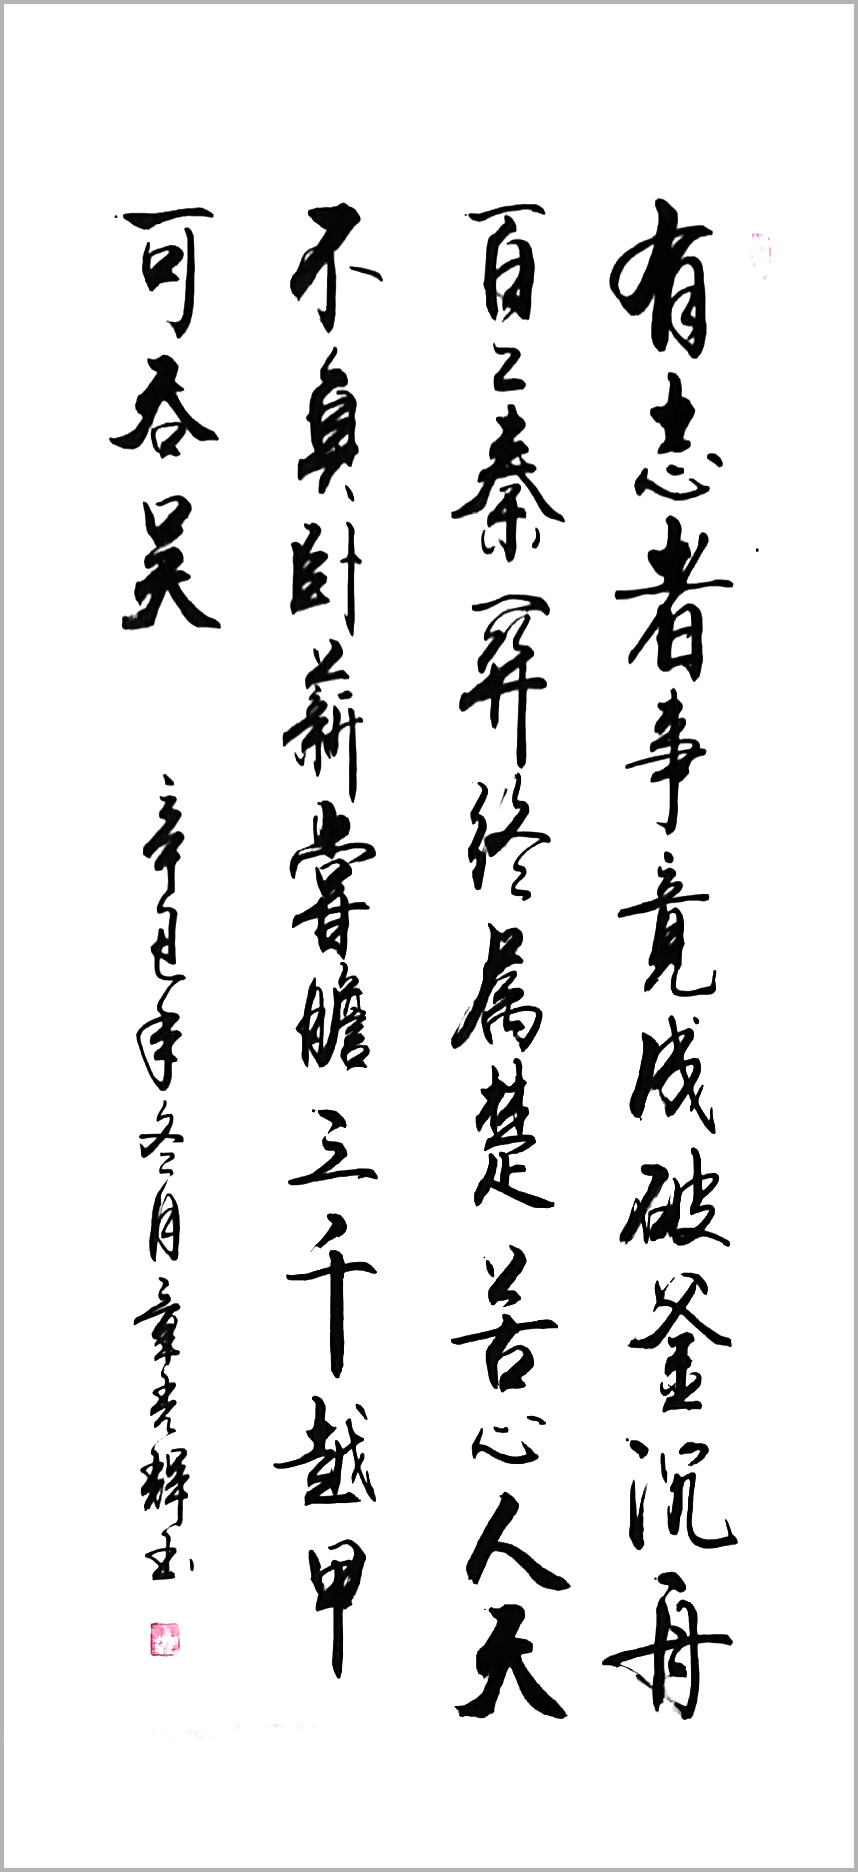 有志者事竟成破釜沉舟
百二秦關終属楚苦心人天
不負卧薪嘗膽三千越甲
可吞吴
辛年冬月章輝书